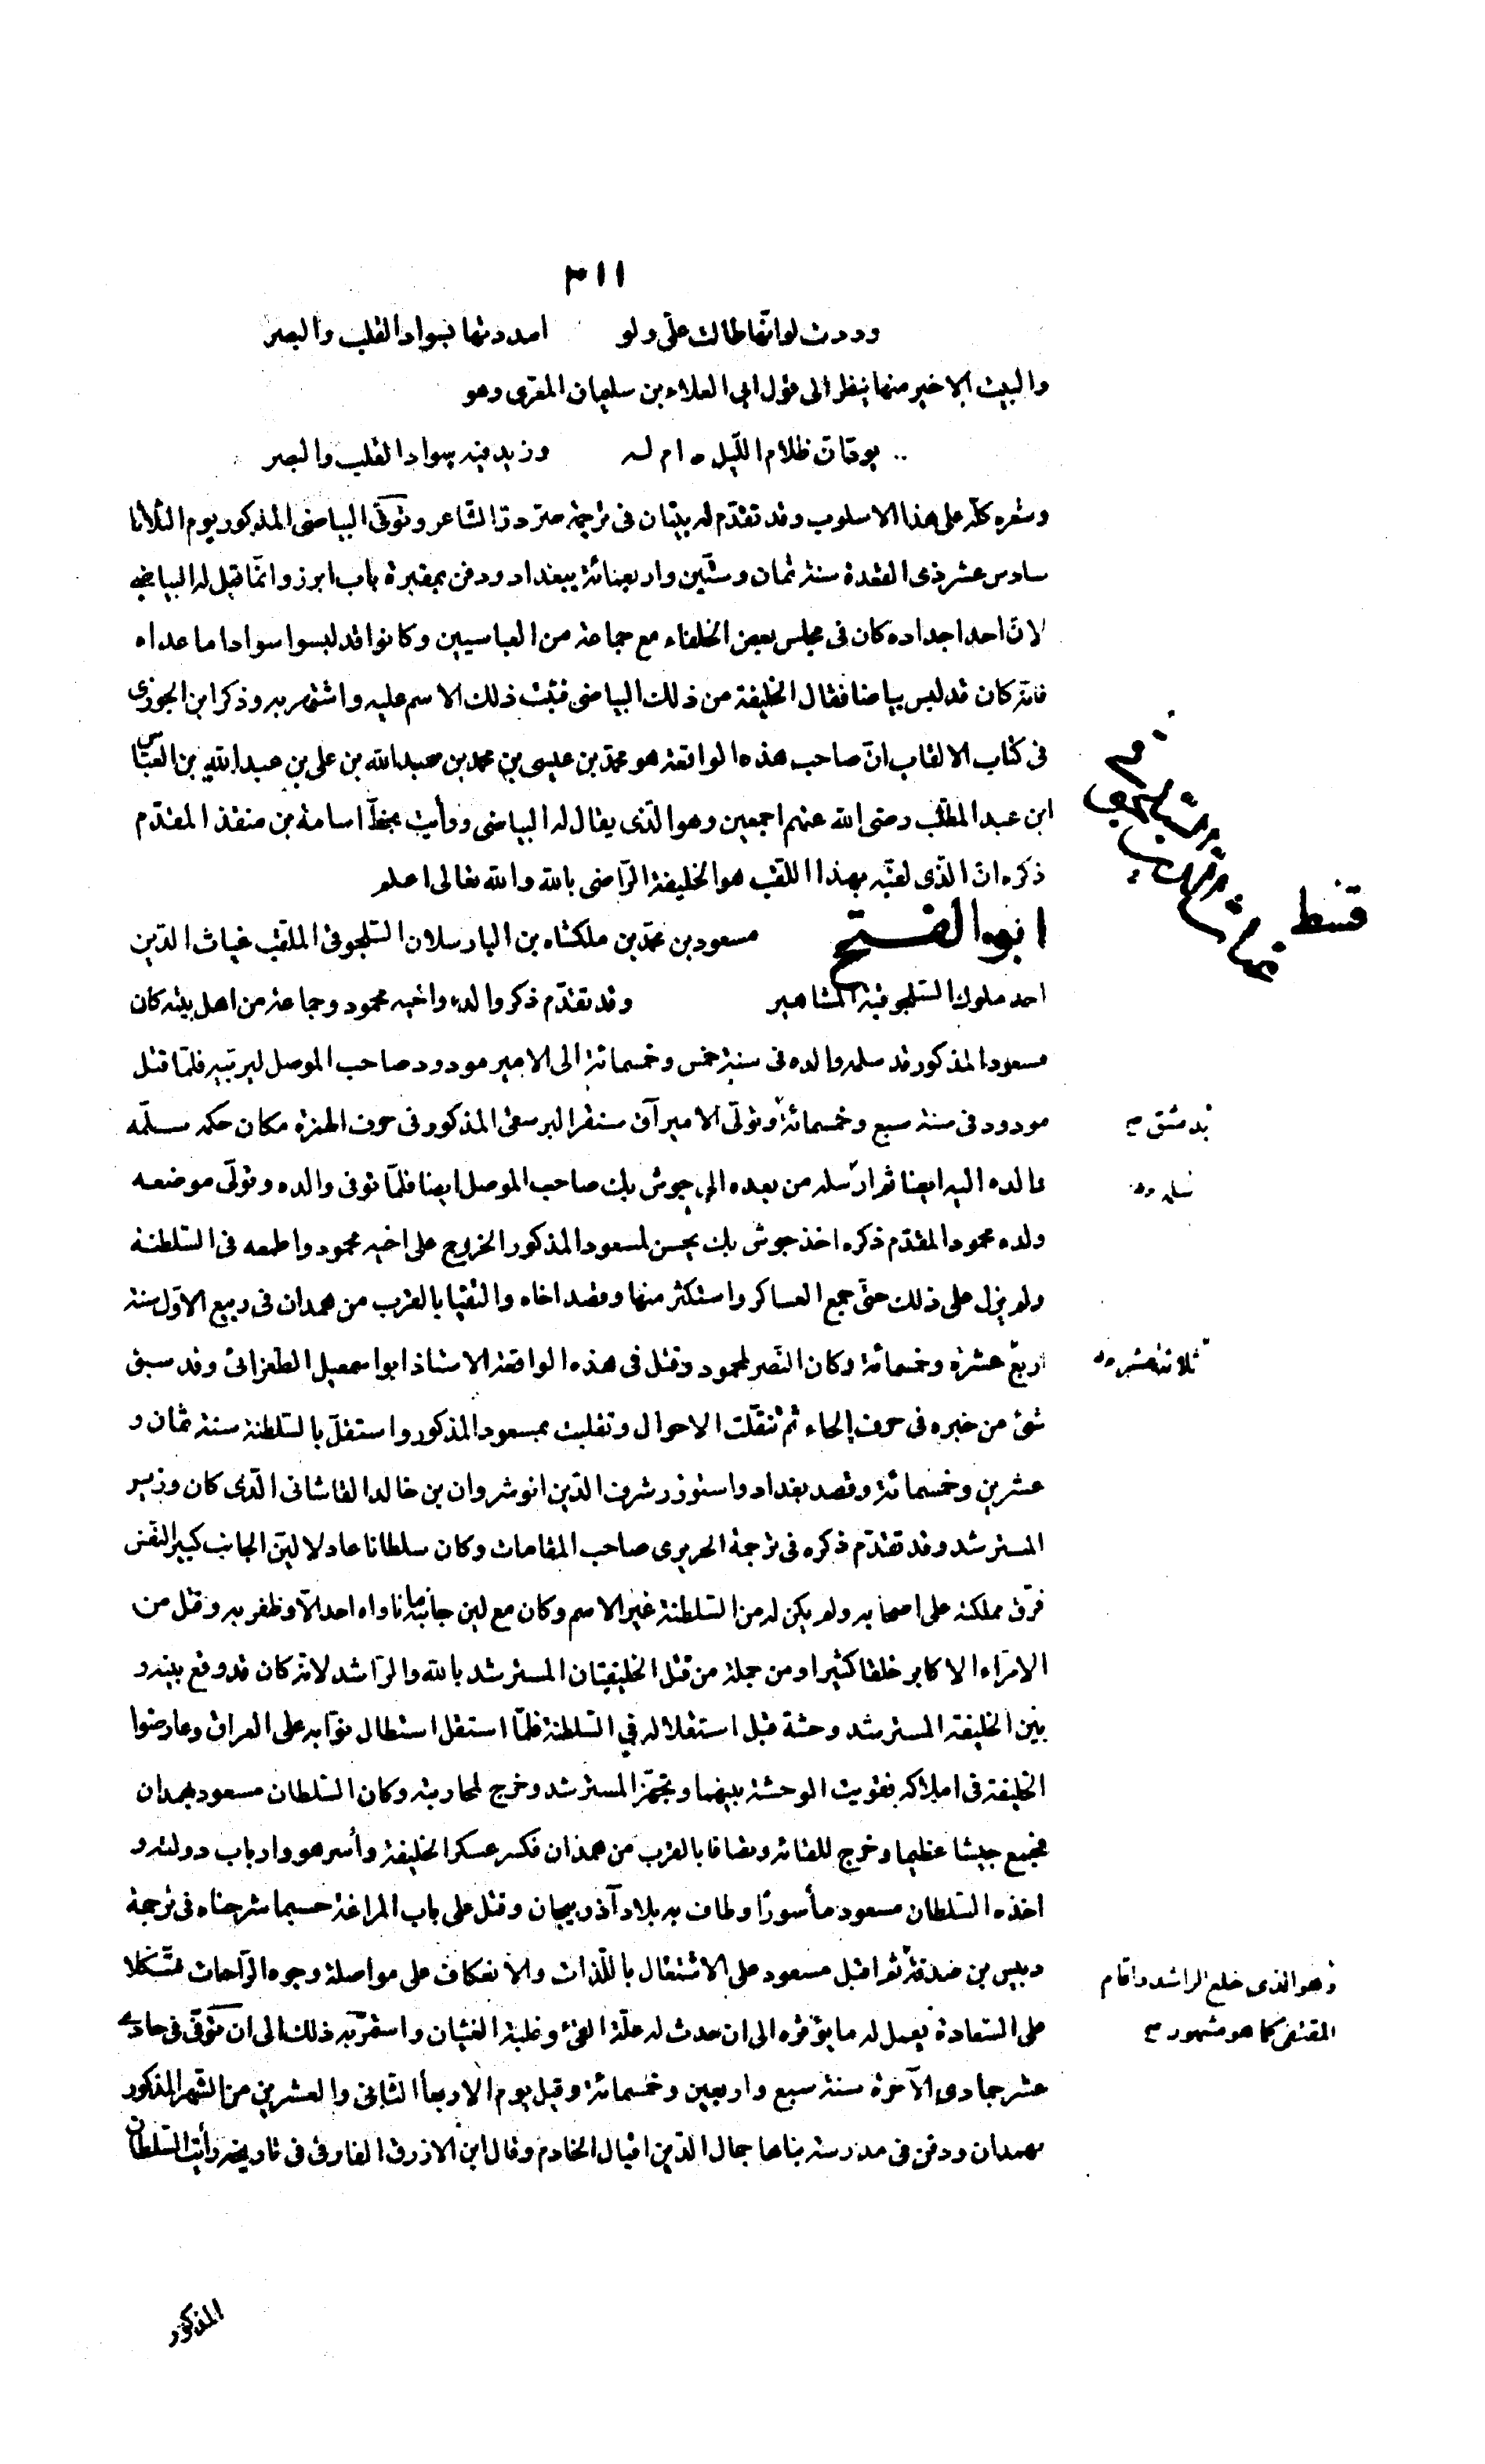 ٣١١
وددت لو انّها طالت علىّ ولو امددتها بسواد القلب والبصر
والبيت الاخير منها ينظر الى قول ابى العلاء بن سليمان المعرى وهو
يودّ ان ظلام الليل دام له وزيد فيه سواد القلب والبصر
وشعره كله على هذا الاسلوب وقد تقدّم له بيتان فى ترجمة صرّدرّ الشاعر وتوفّى البياضى المذكور يوم الثلاثا
سادس عشر ذى القعدة سنة ثمان وستّين واربعمائة ببغداد ودفن بمقبرة باب ابرز وانّما قيل له البياضى
لانّ احد اجداده كان فى مجلس بعض الخلفاء مع جماعة من العباسيين وكانوا قد لبسوا سوادا ما عداه
فانّه كان قد لبس بياضا فقال الخليفة من ذلك البياضى فثبت ذلك الاسم عليه واشتهر به وذكر ابن الجوزى
فى كتاب الالقاب انّ صاحب هذه الواقعة هو محمّد بن عيسى بن محمد بن عبدالله بن على بن عبدالله بن العبّاس
ابن عبد المطّلب رضى الله عنهم اجمعين وهو الّذى يقال له البياضى ورأيت بخطّ اسامة بن منقذ المقدّم
ذكره انّ الّذى لقّبه بهذا اللقب هو الخليفة الرّاضى بالله والله تعالى اعلم
ابو الفتح مسعود بن محمّد بن ملكشاه بن الب ارسلان السّلجوقى الملقب غياث الدّين
احد ملوك السّلجوقية المشاهير وقد تقدّم ذكر والده واخيه محمود وجماعة من اهل بيته كان
مسعود المذكور قد سلمه والده فى سنة خمس وخمسمائة الى الامير مودود صاحب الموصل ليربّيه فلمّا قتل
مودود فى سنة سبع وخمسمائة وتولّى الامير آق سنقر البرسقى المذكور فى حرف الهمزة مكان حكمه سلّمه
والده اليه ايضا ثم ارسله من بعده الى جوش بك صاحب الموصل ايضا فلمّا توفى والده وتولّى موضعه
ولده محمود المقدّم ذكره اخذ جوش بك يحسن لمسعود المذكور الخروج على اخيه محمود واطمعه فى السّلطنة
ولم يزل على ذلك حتّى جمع العساكر واستكثر منها وقصد اخاه والتقيا بالقرب من همدان فى ربيع الاوّل سنة
اربع عشرة وخمسمائة وكان النّصر لمحمود وقتل فى هذه الواقعة الاستاذ ابو اسمعيل الطغرائى وقد سبق
شئ من خبره فى حرف الحاء ثمّ تنقّلت الاحوال وتقلبت بمسعود المذكور واستقلّ بالسّلطنة سنة ثمان و
عشرين وخمسمائة وقصد بغداد واستوزر شرف الدّين انوشروان بن خالد القاشانى الّذى كان وزير
المسترشد وقد تقدّم ذكره فى ترجمة الحريرى صاحب المقامات وكان سلطانا عادلا ليّن الجانب كبير النّفس
فرّق مملكته على اصحابه ولم يكن له من السّلطنة غير الاسم وكان مع لين جانبه ما ناواه احد الّا وظفر به وقتل من
الامراء الاكابر خلقا كثيرا ومن جملة من قتل الخليفتان المسترشد بالله والرّاشد لانّه كان قد وقع بينه و
بين الخليفة المسترشد وحشة قبل استقلاله فى السّلطنة فلمّا استقل استطال نوّابه على العراق وعارضوا
الخليفة فى املاكه فقويت الوحشة بينهما وتجهّز المسترشد وخرج لمحاربته وكان السّلطان مسعود بهمدان
فجمع جيشا عظيما وخرج للقائه وتصافا بالقرب من همذان فكسر عسكر الخليفة وأسر هو وارباب دولته و
اخذه السّلطان مسعود مأسورًا وطاف به بلاد آذربيجان وقتل على باب المراغة حسبما شرحناه فى ترجمة
دبيس بن صدقة ثم اقبل مسعود على الاشتغال باللّذات والانعكاف على مواصلة وجوه الرّاحات متّكلا
على السّعادة يعمل له ما يؤثره الى ان حدث له علّة القئ وغلبة الغثيان واستمرّ به ذلك الى ان توفّى فى حادى
عشر جمادى الآخرة سنة سبع واربعين وخمسمائة وقيل يوم الاربعا الثّانى والعشرين من الشّهر المذكور
بهمدان ودفن فى مدرسة بناها جمال الدّين اقبال الخادم وقال ابن الازرق الفارقى فى تاريخه رأيت السّلطان
المذكور
قسط
بدمشق صح
ثلاث عشره
وهو الذى خلع الراشد واقام
المقتفى كما هو مشهور صح